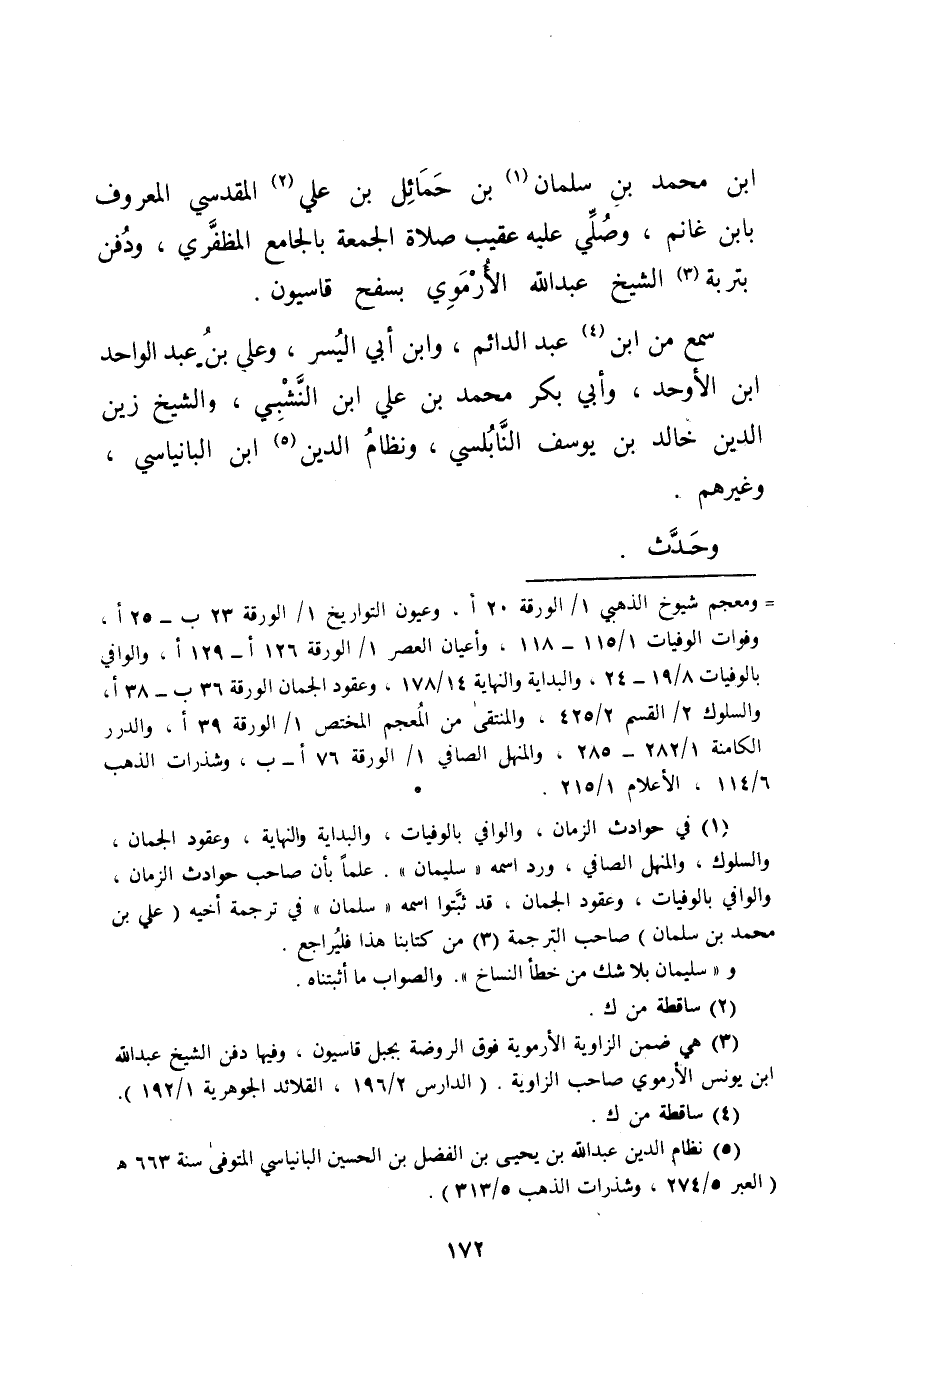 ابن محمد بنِ سلمان(١) بن حَمَائِل بن علي(٢) المقدسي المعروف
بابن غانم ، وصُلِّي عليه عقيب صلاة الجمعة بالجامع المظفَّري ، ودُفن
بتربة(٣) الشيخ عبدالله الأُرْمَوِي بسفح قاسيون .
سمع من ابن(٤) عبد الدائم ، وابن أبي اليُسر ، وعلي بنُ عبد الواحد
ابن الأوحد ، وأبي بكر محمد بن علي ابن النَّشْبِي ، والشيخ زين
الدين خالد بن يوسف النَّابُلسي ، ونظامُ الدين(٥) ابن البانياسي ،
وغيرهم .
وحَدَّث .
= ومعجم شيوخ الذهبي ١/ الورقة ٢٠ أ . وعيون التواريخ ١/ الورقة ٢٣ ب ــ ٢٥ أ ،
وفوات الوفيات ١١٥/١ ــ ١١٨ ، وأعيان العصر ١/ الورقة ١٢٦ أ ــ ١٢٩ أ ، والوافي
بالوفيات ١٩/٨ ــ ٢٤ ، والبداية والنهاية ١٧٨/١٤ ، وعقود الجمان الورقة ٣٦ ب ــ ٣٨ أ ،
والسلوك ٢/ القسم ٤٢٥/٢ ، والمنتقىٰ من المُعجم المختص ١/ الورقة ٣٩ أ ، والدرر
الكامنة ٢٨٢/١ ــ ٢٨٥ ، والمنهل الصافي ١/ الورقة ٧٦ أ ــ ب ، وشذرات الذهب
١١٤/٦ ، الأعلام ٢١٥/١ .
(١) في حوادث الزمان ، والوافي بالوفيات ، والبداية والنهاية ، وعقود الجمان ،
والسلوك ، والمنهل الصافي ، ورد اسمه « سليمان » . علماً بأن صاحب حوادث الزمان ،
والوافي بالوفيات ، وعقود الجمان ، قد ثبَّتوا اسمه « سلمان » في ترجمة أخيه ( علي بن
محمد بن سلمان ) صاحب الترجمة (٣) من كتابنا هذا فليُراجع .
و « سليمان بلا شك من خطأ النساخ ». والصواب ما أثبتناه .
(٢) ساقطة من ك .
(٣) هي ضمن الزاوية الأرموية فوق الروضة بجبل قاسيون ، وفيها دفن الشيخ عبدالله
ابن يونس الأرموي صاحب الزاوية . ( الدارس ١٩٦/٢ ، القلائد الجوهرية ١٩٢/١ ).
(٤) ساقطة من ك .
(٥) نظام الدين عبدالله بن يحيى بن الفضل بن الحسين البانياسي المتوفىٰ سنة ٦٦٣ هـ
( العبر ٢٧٤/٥ ، وشذرات الذهب ٣١٣/٥ ) .
١٧٢